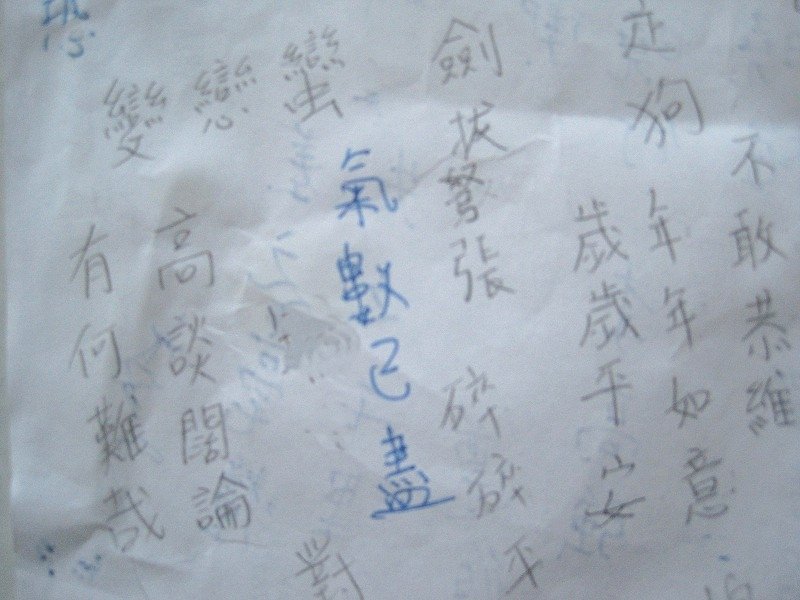 不敢恭維
走狗
年年如意
歲歲平安
劍拔弩張
碎碎平
氣數已盡
蠻
戀
變
對
高談闊論
有何難哉